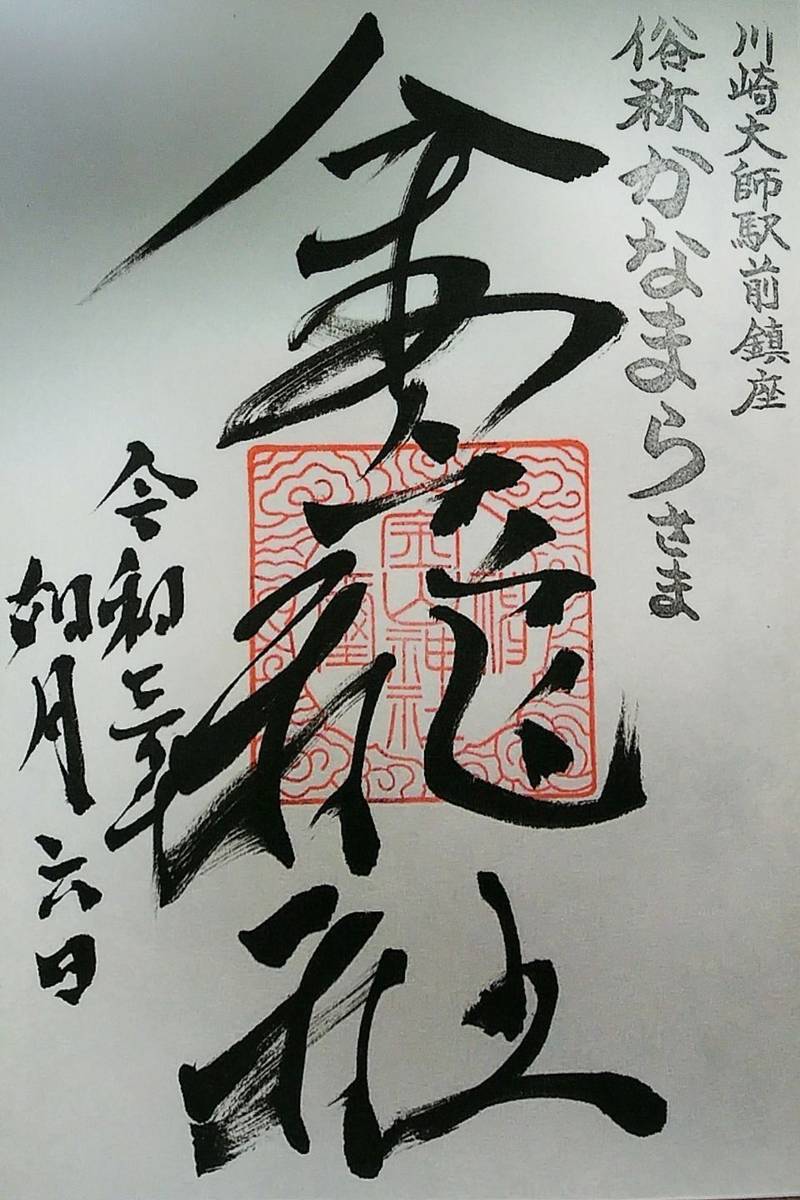 川崎大師駅前鎮座
俗称かなまらさま
金龍社
金山神社
令和 年
如月六日